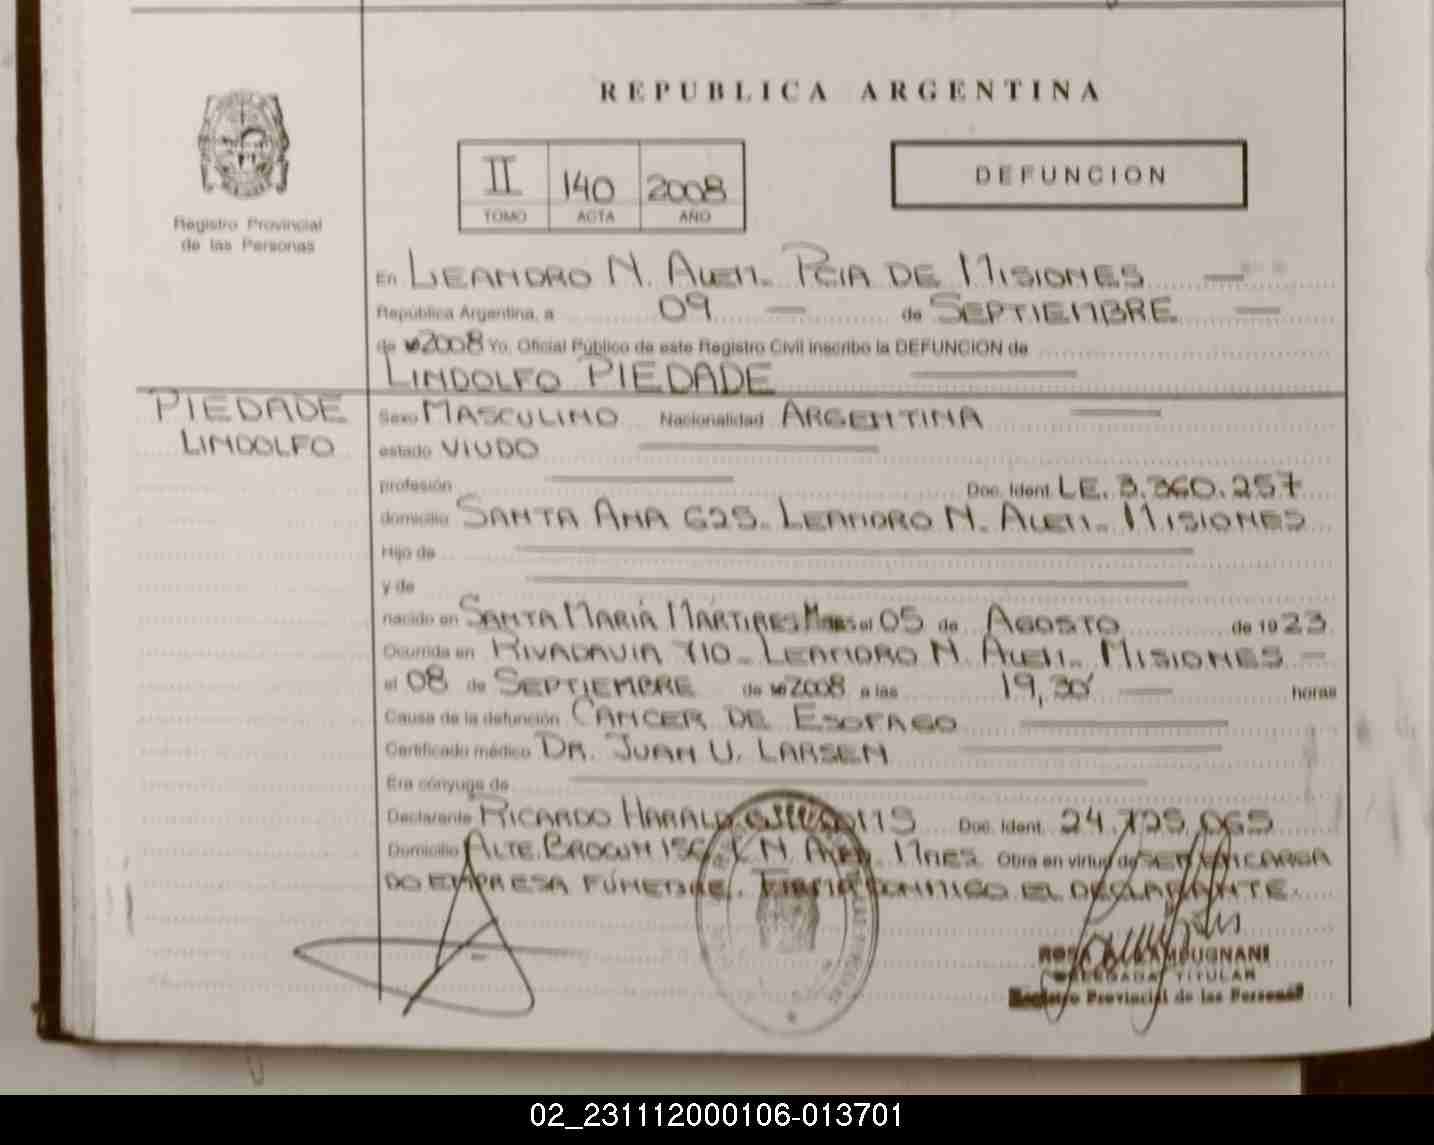 REPUBLICA ARGENTINA
II 140 2008
TOMO ACTA AÑO
DEFUNCION
Registro Provincial
de las Personas
En LEANDRO N. ALEM. PCIA DE MISIONES
República Argentina, a 09 de SEPTIEMBRE
de 2008 Yo, Oficial Público de este Registro Civil inscribo la DEFUNCION de
LINDOLFO PIEDADE
PIEDADE
LINDOLFO
Sexo MASCULINO Nacionalidad ARGENTINA
estado VIUDO
profesión Doc. Ident. LE. 3.360.257
domicilio SANTA ANA 625. LEANDRO N. ALEM. MISIONES
Hijo de
y de
nacido en SANTA MARIA MARTIRES Mnes el 05 de AGOSTO de 1923
Ocurrida en RIVADAVIA 710. LEANDRO N. ALEM. MISIONES
el 08 de SEPTIEMBRE de 2008 a las 19,30 horas
Causa de la defunción CANCER DE ESOFAGO
Certificado médico DR. JUAN U. LARSEN
Era cónyuge de
Declarante RICARDO HARALD Doc. Ident. 24.725.065
Domicilio ALTE. BROWN 156. L N. ALEM. MNES. Obra en virtud de SER ENCARGA
DO EMPRESA FÚNEBRE. FIRMA CONMIGO EL DECLARANTE.
DELEGADA TITULAR
Registro Provincial de las Personas
02_231112000106-013701